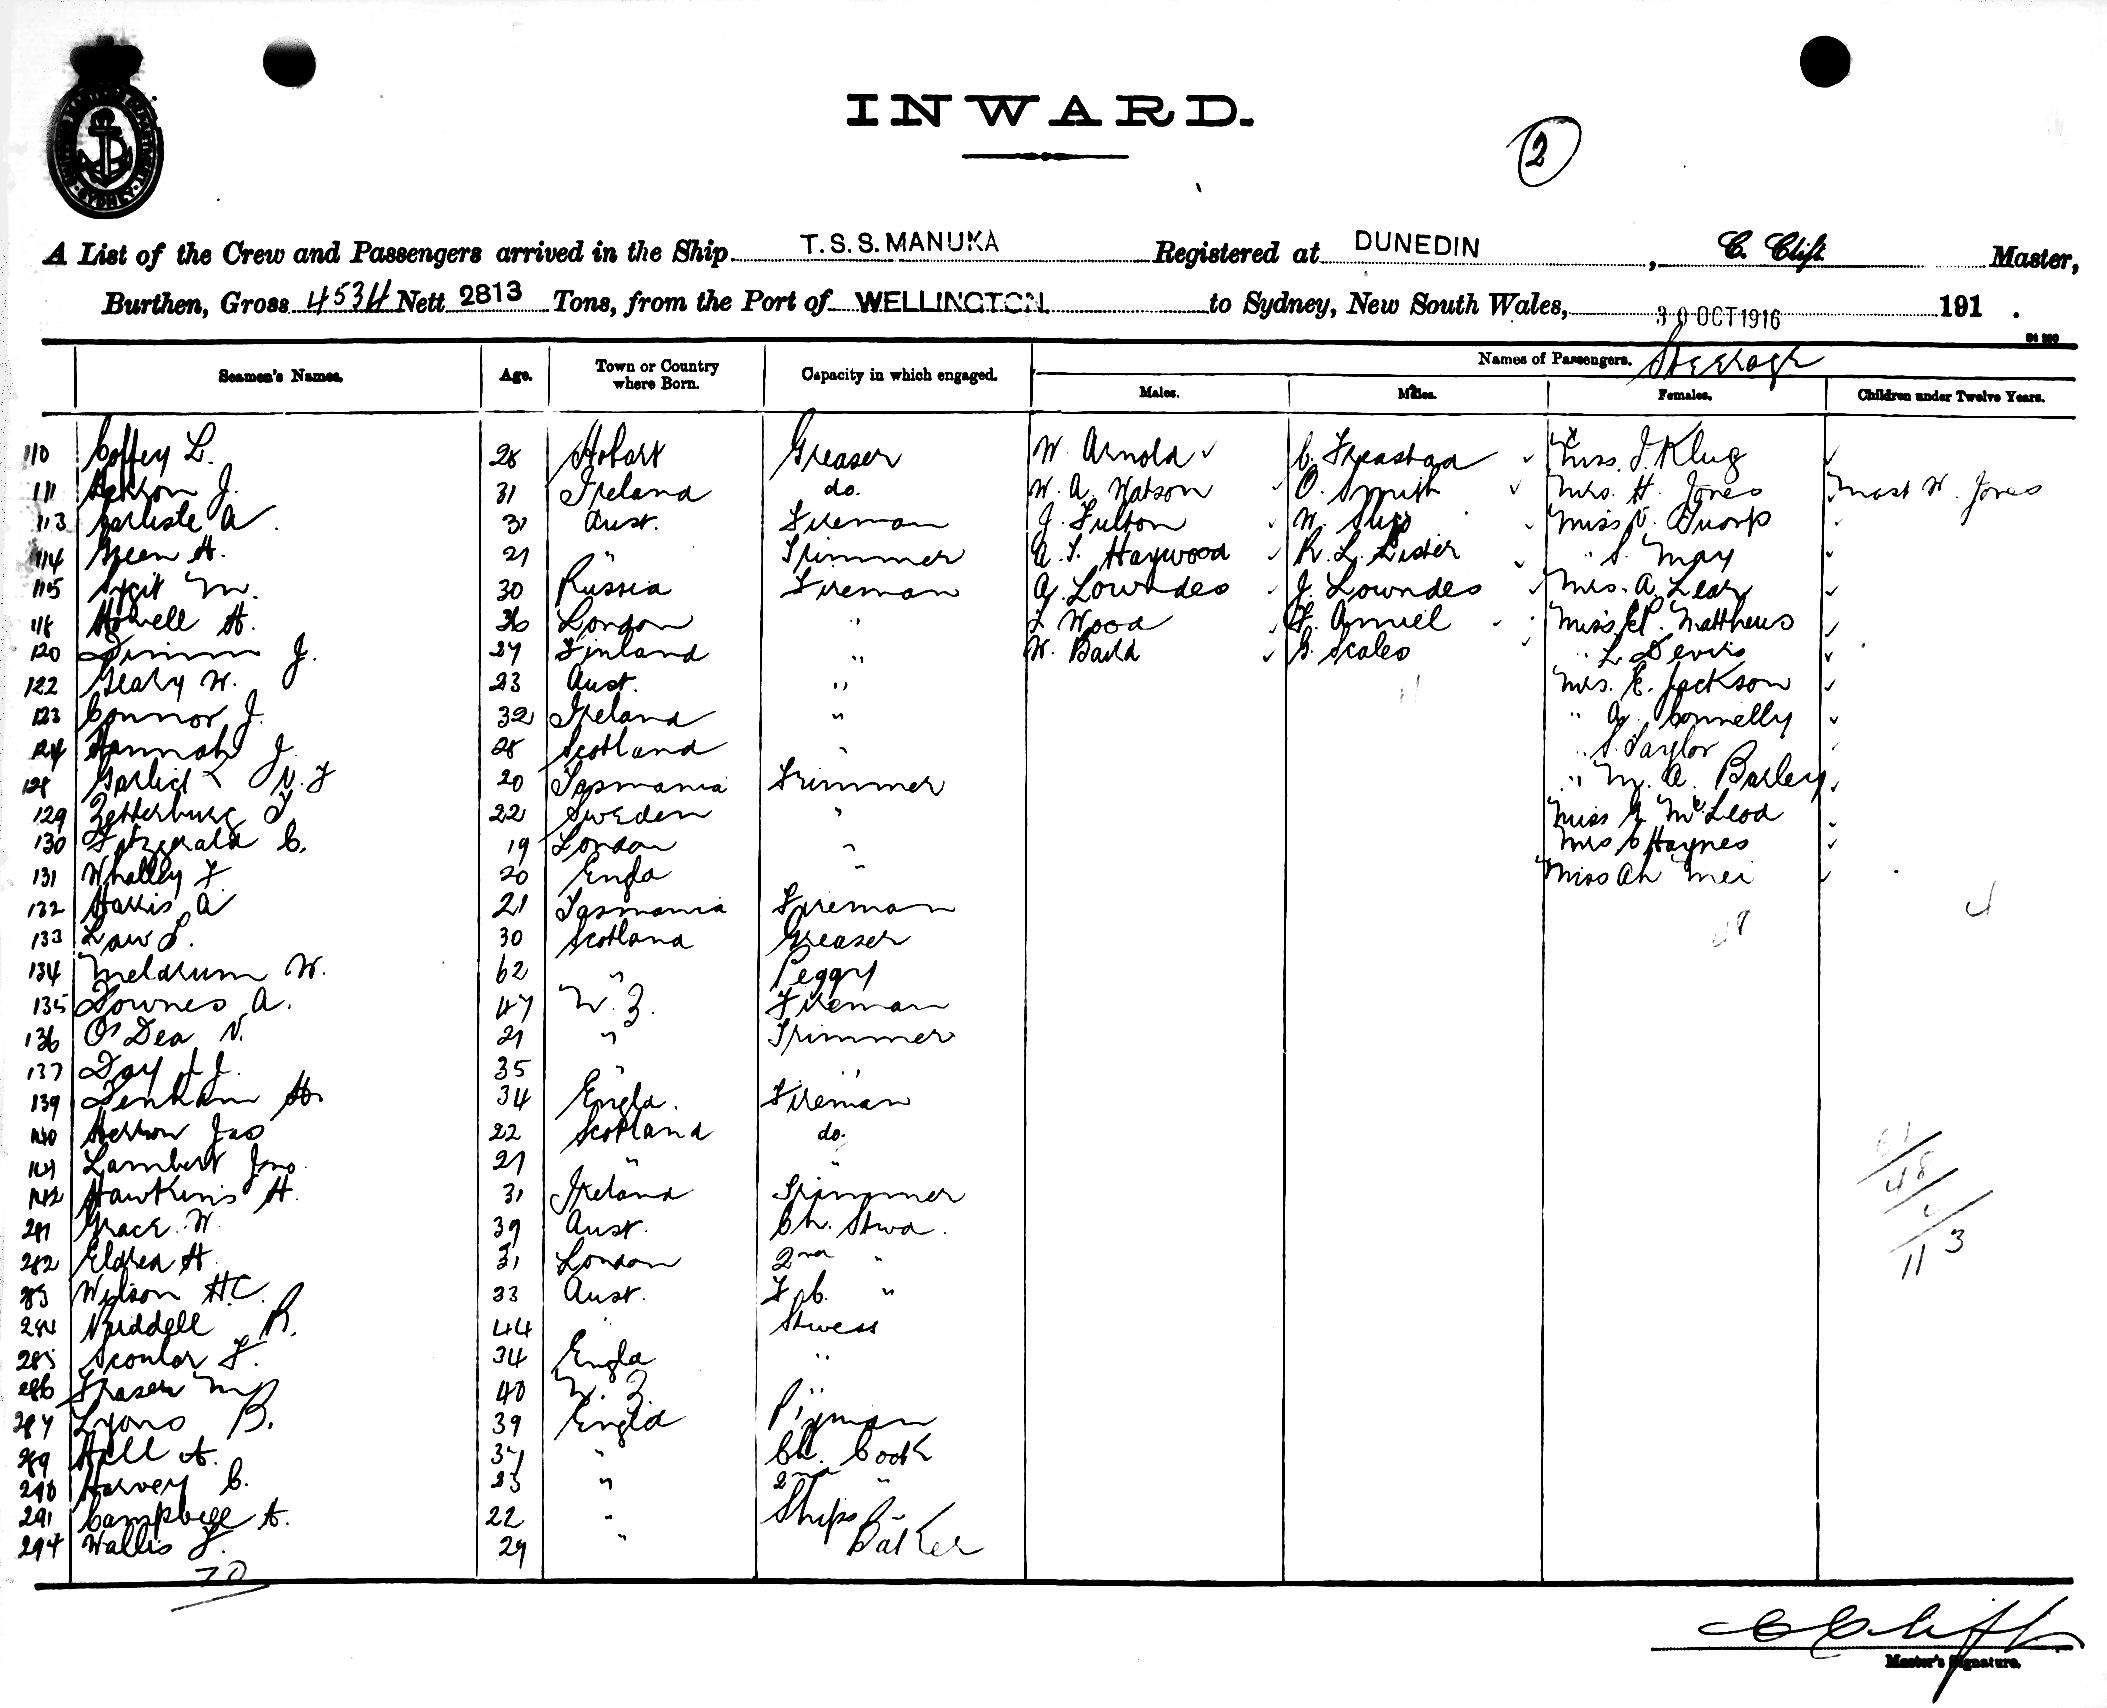 INWARD.
2
A List of the Crew and Passengers arrived in the Ship T.S.S. MANUKA Registered at DUNEDIN, C. Clift Master,
Burthen, Gross 4534 Nett 2813 Tons, from the Port of WELLINGTON to Sydney, New South Wales, 30 OCT 1916 191 .
Seamen's Names. Age. Town or Country where Born. Capacity in which engaged. Names of Passengers. Steerage
Males. Males. Females. Children under Twelve Years.
110 Coffey L. 28 Hobart Greaser W. Arnold C. Miss J. Klug
111 J. 31 Ireland do. W. A. Watson O. Smith Mrs. H. Jones Mast W. Jones
113 Carlisle A. 31 Aust. Fireman J. Fulton W. Miss V. Thorp
114 Green H. 21 " Trimmer A. T. Haywood R. L. Lister " S. May
115 M. 30 Russia Fireman A. Lowndes J. Lowndes Mrs. A. Lear
118 Howell H. 36 London " Wood F. Amiel Miss Matthews
120 J. 27 Finland " W. Baild G. Scales " L. Devis
122 Geary W. 23 Aust. " Mrs. E. Jackson
123 Connor J. 32 Ireland " " A. Connelly
124 Hannah J. 28 Scotland " " S. Taylor
128 Garlick N. F 20 Tasmania Trimmer " M. A. Barley
129 Zetterburg F 22 Sweden " Miss McLeod
130 Fitzgerald C. 19 London " Mrs C Haynes
131 Whalley F. 20 Engld " Miss Ah Mei
132 Harris A 21 Tasmania Fireman 4
133 Law S. 30 Scotland Greaser
134 Meldrum W. 62 " Peggy
135 Downes A. 47 N. Z. Fireman
136 O'Dea V. 21 " Trimmer
137 Day J. J. 35 " "
139 Denham H. 34 Engld. Fireman
140 Herron Jas 22 Scotland do.
141 Lambert Jno. 21 " "
142 Hawkins H. 31 Ireland Trimmer
281 Grace W. 39 Aust. Ch. Stwd.
282 Eldred H. 31 London 2nd "
283 Wilson H.C. 33 Aust. F. C. "
284 Riddell R. 44 " Stwess
285 Scoular F. 34 Engld "
286 Fraser M 40 N. Z. "
287 Lyons B. 39 Engld Pigman
289 Hall A. 37 " Ch. Cook
290 Harvey C. 23 " 2nd "
291 Campbell A. 22 " Ships "
294 Wallis F. 29 " Baker
70
48
11 3
C Clift
Master's Signature.